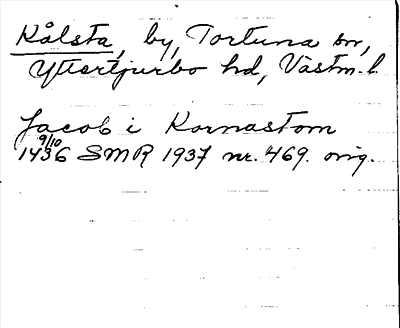 Kålsta, by, Tortuna sn,
Yttertjurbo hd, Västm. l.
Jacob i Kornastom
9/10
1436 SMR 1937 nr. 469. orig.